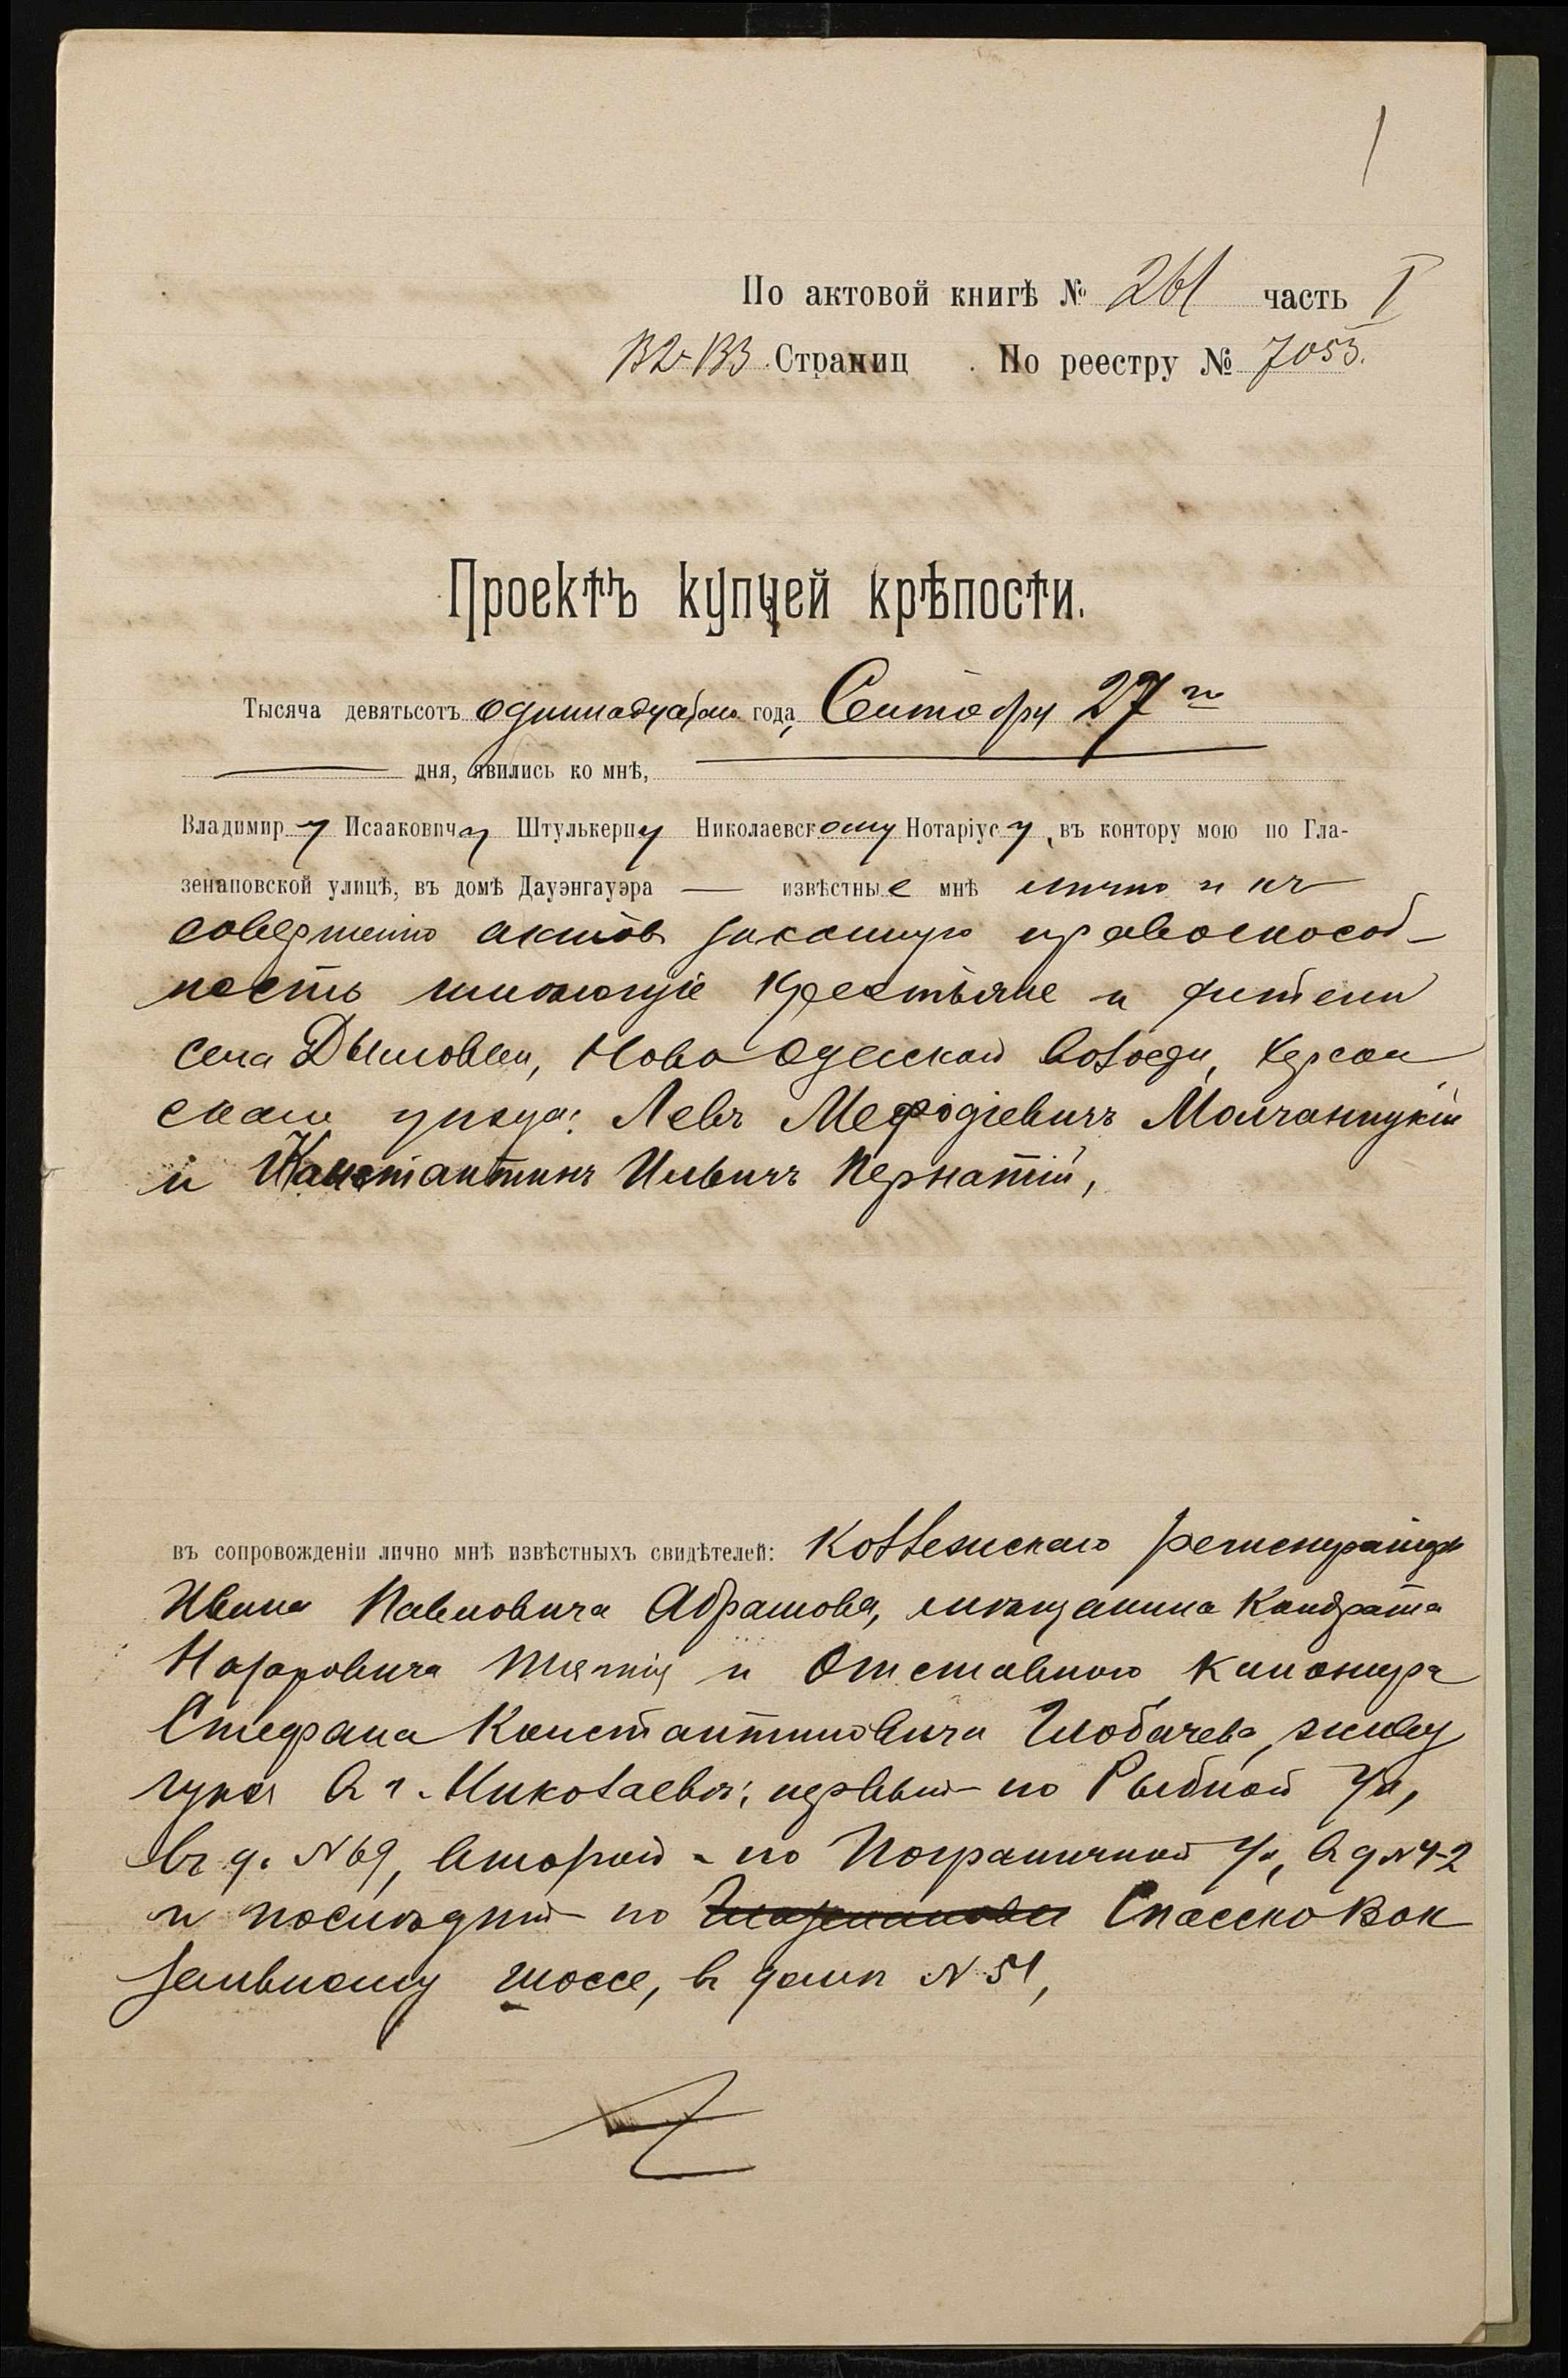 1
По актовой книгѣ № 261 часть I
132-133 Страниц. По реестру № 7053.
Проектъ купчей крѣпости.
Тысяча девятьсотъ одиннадцатаго года, Сентября 27го
дня, явились ко мнѣ,
Владимиру Исааковичу Штулькерцу Николаевскому Нотаріусу, въ контору мою по Гла-
зенаповской улицѣ, въ домѣ Дауэнгауэра — извѣстные мнѣ лично и къ
совершенію актовъ законную правоспособ-
ность имѣющіе крестьяне и жители
села Дымовки, Ново Одесской волости, Херсон
скаго уѣзда: Левъ Мефодіевичъ Молчаницкій
и Константинъ Ильичъ Пернатій,
въ сопровожденіи лично мнѣ извѣстныхъ свидѣтелей: Коллежскаго регистратора
Ивана Павловича Абрамова, мѣщанина Кондрата
Назаровича и Отставного канонира
Стефана Константиновича Глобачева, живу
щихъ въ г. Николаевѣ: первый по Рыбной ул,
въ д. № 69, второй - по Пограничной ул, въ д №
и послѣдній по Спасско Вок
зальному шоссе, въ домѣ № 51,